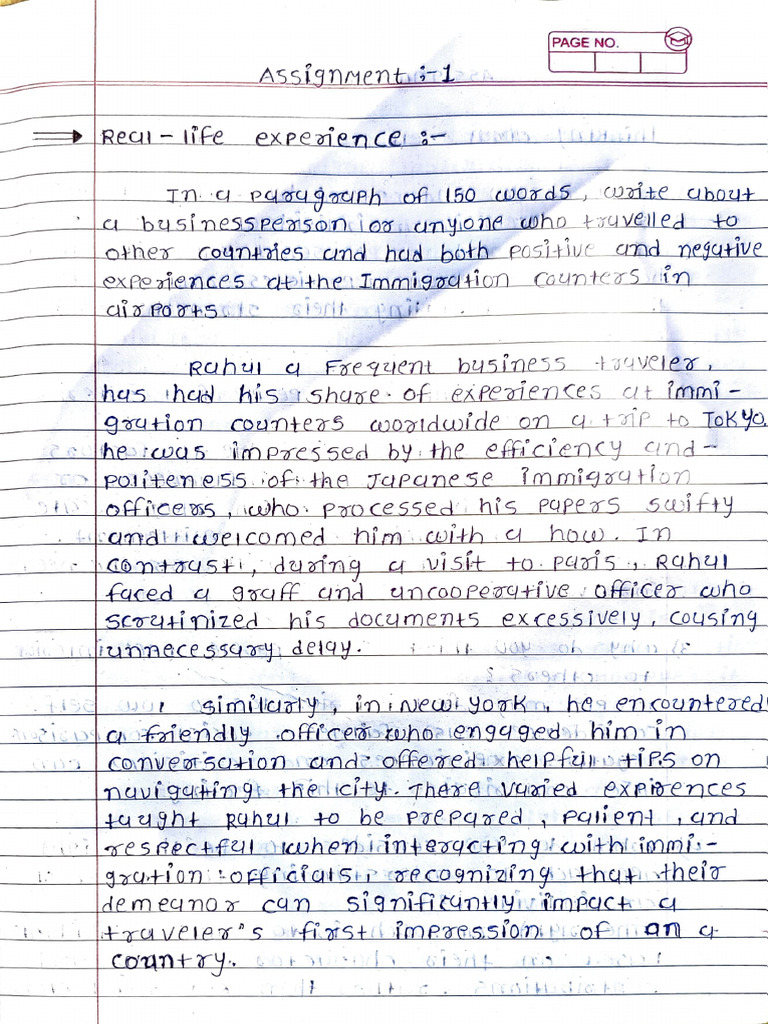 PAGE NO.
Assignment :- 1
⟹ Real-life experience :-
In a paragraph of 150 words, write about
a businessperson or anyone who travelled to
other countries and had both positive and negative
experiences at the Immigration counters in
airports.
Rahul a Frequent business traveler,
has had his share of experiences at immi-
gration counters worldwide on a trip to TOKYO.
he was impressed by the efficiency and-
politeness of the Japanese immigration
officers, who processed his papers swifty
and welcomed him with a how. In
contrast, during a visit to paris, Rahul
faced a graff and uncooperative officer who
scrutinized his documents excessively, cousing
unnecessary delay.
similarly, in New york, he encountered
a friendly officer who engaged him in
conversation and offered helpful tips on
navigating the city. There varied expirences
taught Rahul to be prepared, palient, and
respectful when interacting with immi-
gration officials, recognizing that their
demeanor can significantly impact a
traveler's first impression of an a
country.